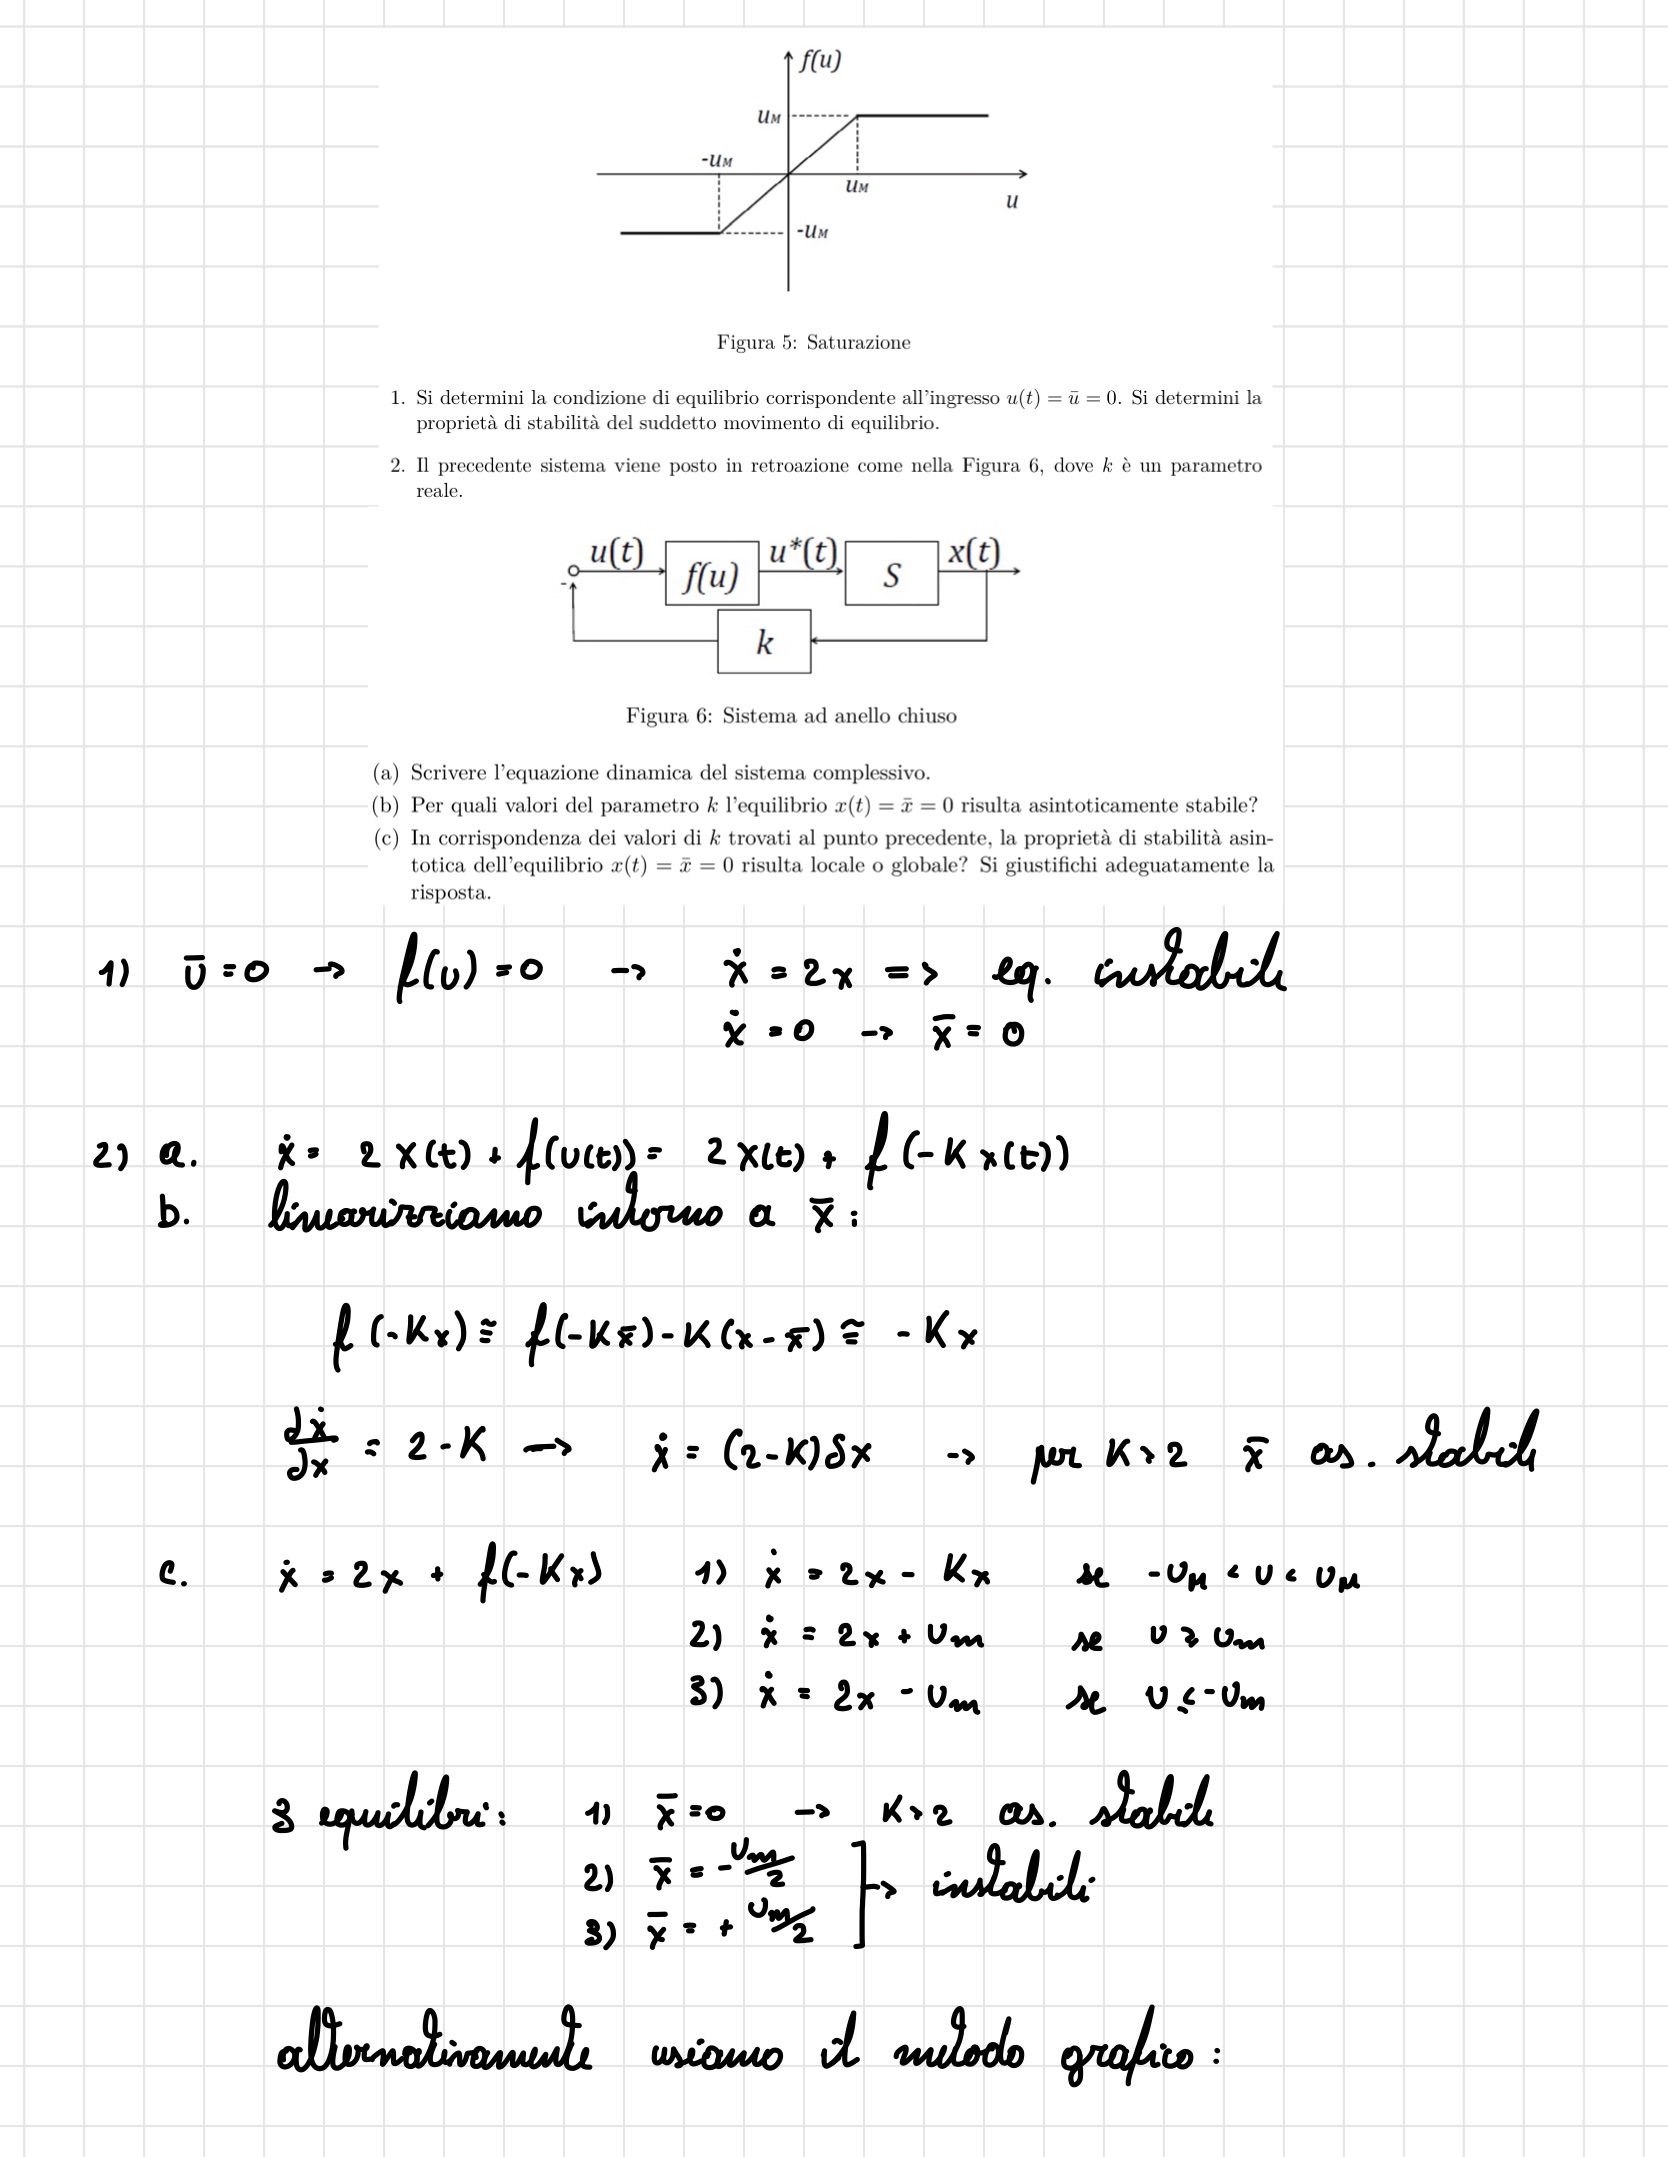 f(u)
uM
-uM
uM
u
-uM
Figura 5: Saturazione
1. Si determini la condizione di equilibrio corrispondente all'ingresso u(t) = ū = 0. Si determini la
proprietà di stabilità del suddetto movimento di equilibrio.
2. Il precedente sistema viene posto in retroazione come nella Figura 6, dove k è un parametro
reale.
u(t) f(u) u*(t) S x(t)
-
k
Figura 6: Sistema ad anello chiuso
(a) Scrivere l'equazione dinamica del sistema complessivo.
(b) Per quali valori del parametro k l'equilibrio x(t) = x̄ = 0 risulta asintoticamente stabile?
(c) In corrispondenza dei valori di k trovati al punto precedente, la proprietà di stabilità asin-
totica dell'equilibrio x(t) = x̄ = 0 risulta locale o globale? Si giustifichi adeguatamente la
risposta.
1) ū = 0 → f(u) = 0 → ẋ = 2x => eq. instabile
ẋ = 0 → x̄ = 0
2) a. ẋ = 2x(t) + f(u(t)) = 2x(t) + f(-Kx(t))
b. linearizziamo intorno a x̄ :
f(-Kx) ≅ f(-Kx̄) - K(x - x̄) ≅ -Kx
∂ẋ/∂x = 2 - K → ẋ = (2-K)δx → per K > 2 x̄ as. stabile
c. ẋ = 2x + f(-Kx) 1) ẋ = 2x - Kx se -uM < u < uM
2) ẋ = 2x + um se u ≥ um
3) ẋ = 2x - um se u ≤ -um
3 equilibri: 1) x̄ = 0 → K > 2 as. stabile
2) x̄ = -um/2
→ instabili
3) x̄ = + um/2
alternativamente usiamo il metodo grafico :